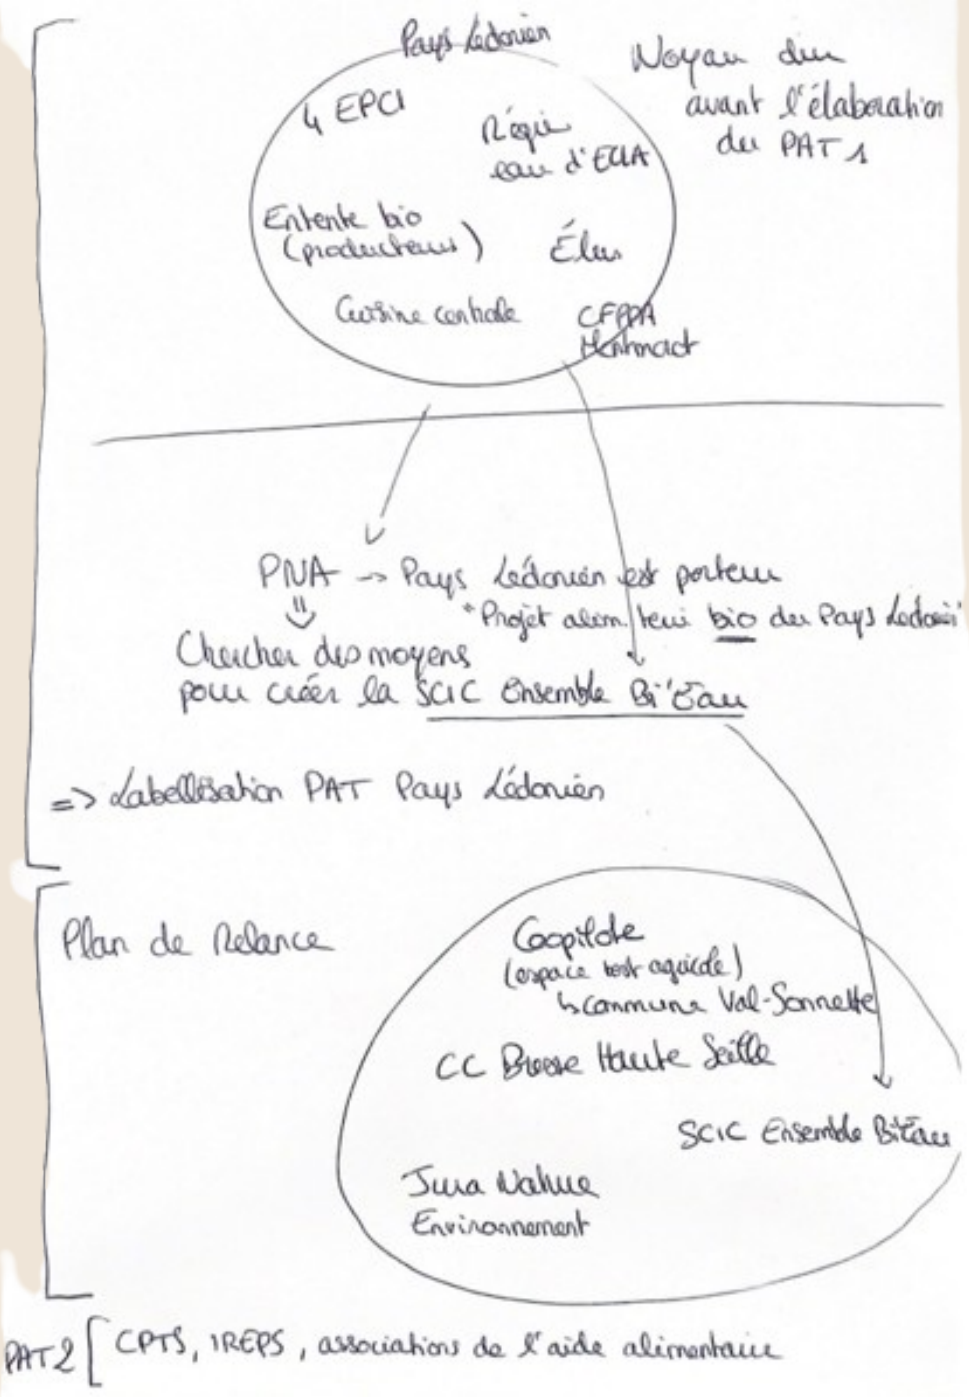 Pays Lédonien
Noyau dur
avant l'élaboration
du PAT 1
4 EPCI
Régie
eau d'ECLA
Entente bio
(producteurs)
Élus
Cuisine centrale
CFPPA
PNA -> Pays Lédonien est porteur
"Projet alim / terri bio du Pays Lédonien"
Chercher des moyens
pour créer la SCIC Ensemble Bi'Eau
=> Labellisation PAT Pays Lédonien
Plan de Relance
Coopilote
(espace test agricole)
↳ commune Val-Sonnette
CC Bresse Haute Seille
SCIC Ensemble Bi'Eau
Jura Nature
Environnement
PAT2 [ CPTS, IREPS, associations de l'aide alimentaire